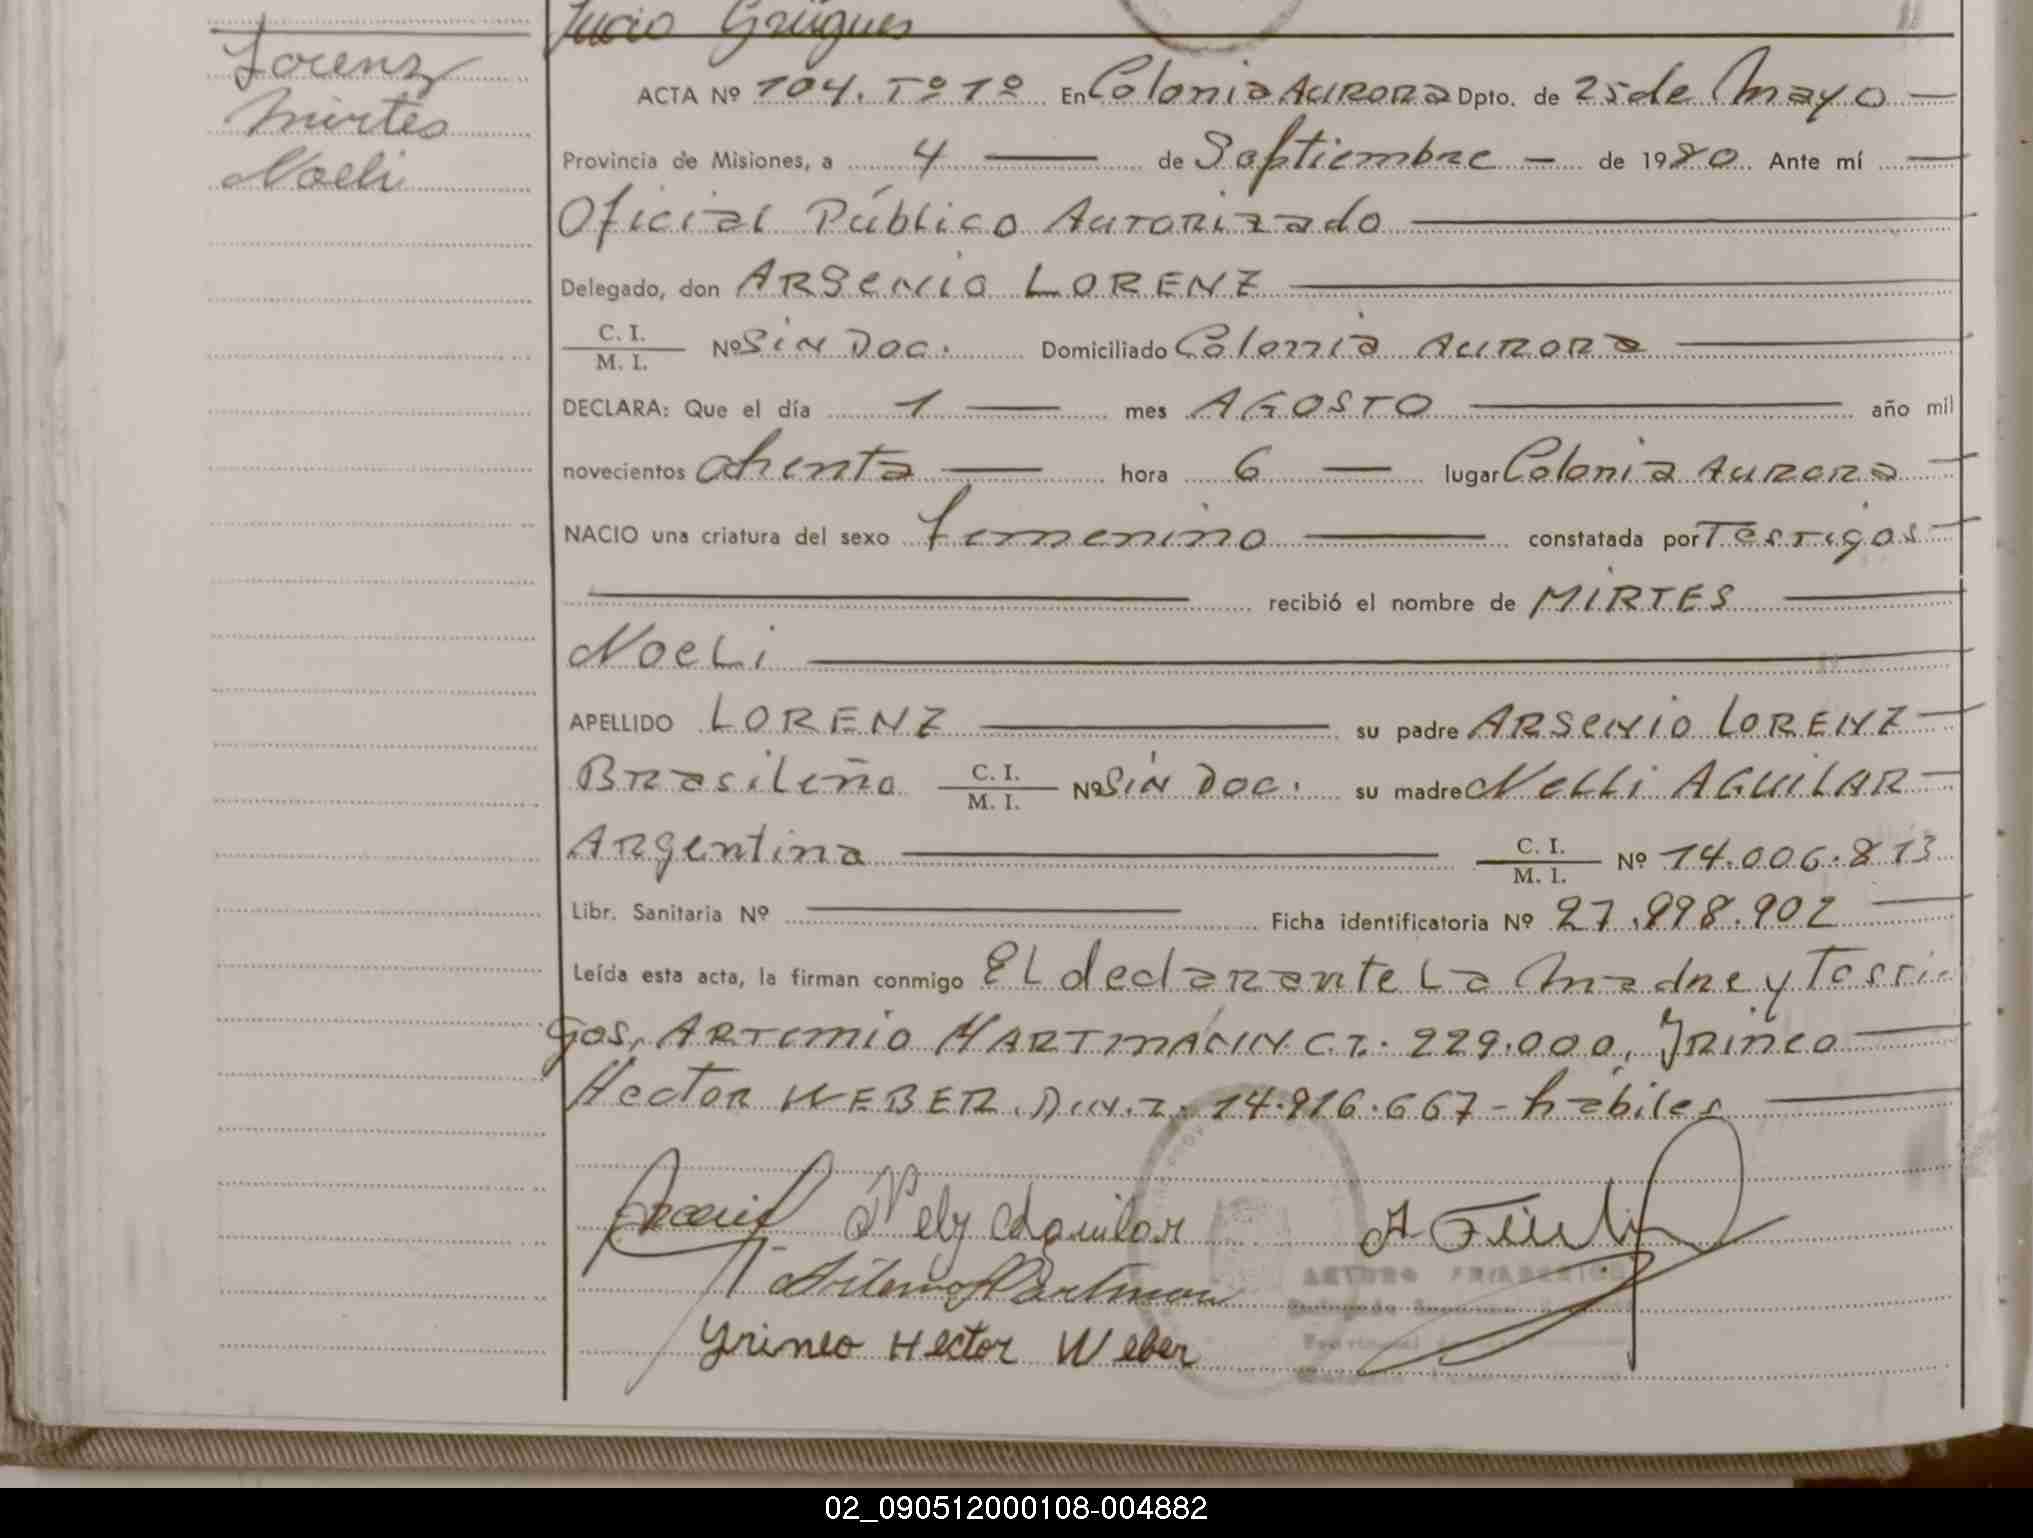 Lucio Grügues
Lorenz
Mirtes
Noeli
ACTA Nº 104. Tº 1º En Colonia Aurora Dpto. de 25 de Mayo
Provincia de Misiones, a 4 de Septiembre de 1980 Ante mí
Oficial Público Autorizado
Delegado, don ARSENIO LORENZ
C. I. / M. I. Nº Sin Doc. Domiciliado Colonia Aurora
DECLARA: Que el día 1 mes AGOSTO año mil
novecientos ochenta hora 6 lugar Colonia Aurora
NACIO una criatura del sexo femenino constatada por Testigos
recibió el nombre de MIRTES
Noeli
APELLIDO LORENZ su padre ARSENIO LORENZ
Brasileño C. I. / M. I. Nº Sin Doc. su madre Nelli AGUILAR
Argentina C. I. / M. I. Nº 14.006.813
Libr. Sanitaria Nº Ficha identificatoria Nº 27.998.902
Leída esta acta, la firman conmigo El declarante La Madre y Testi
gos, ARTEMIO HARTMANN C.I. 229.000, Irineo
Hector WEBER. D.N.I. 14.916.667 - hábiles
Nely Aguilar
Artemio Hartman
Yrineo Hector Weber
ARTURO
02_090512000108-004882